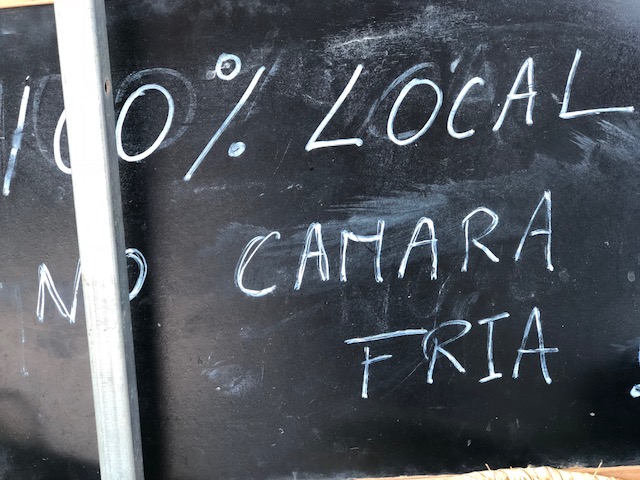 100% LOCAL
NO CAMARA
FRIA